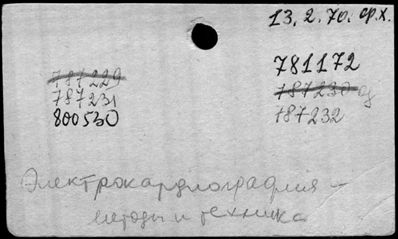 13. 2. 70. ср.х.
787229
787231
800530
781172
787230
787232
Электрокардиография –
методы и техника